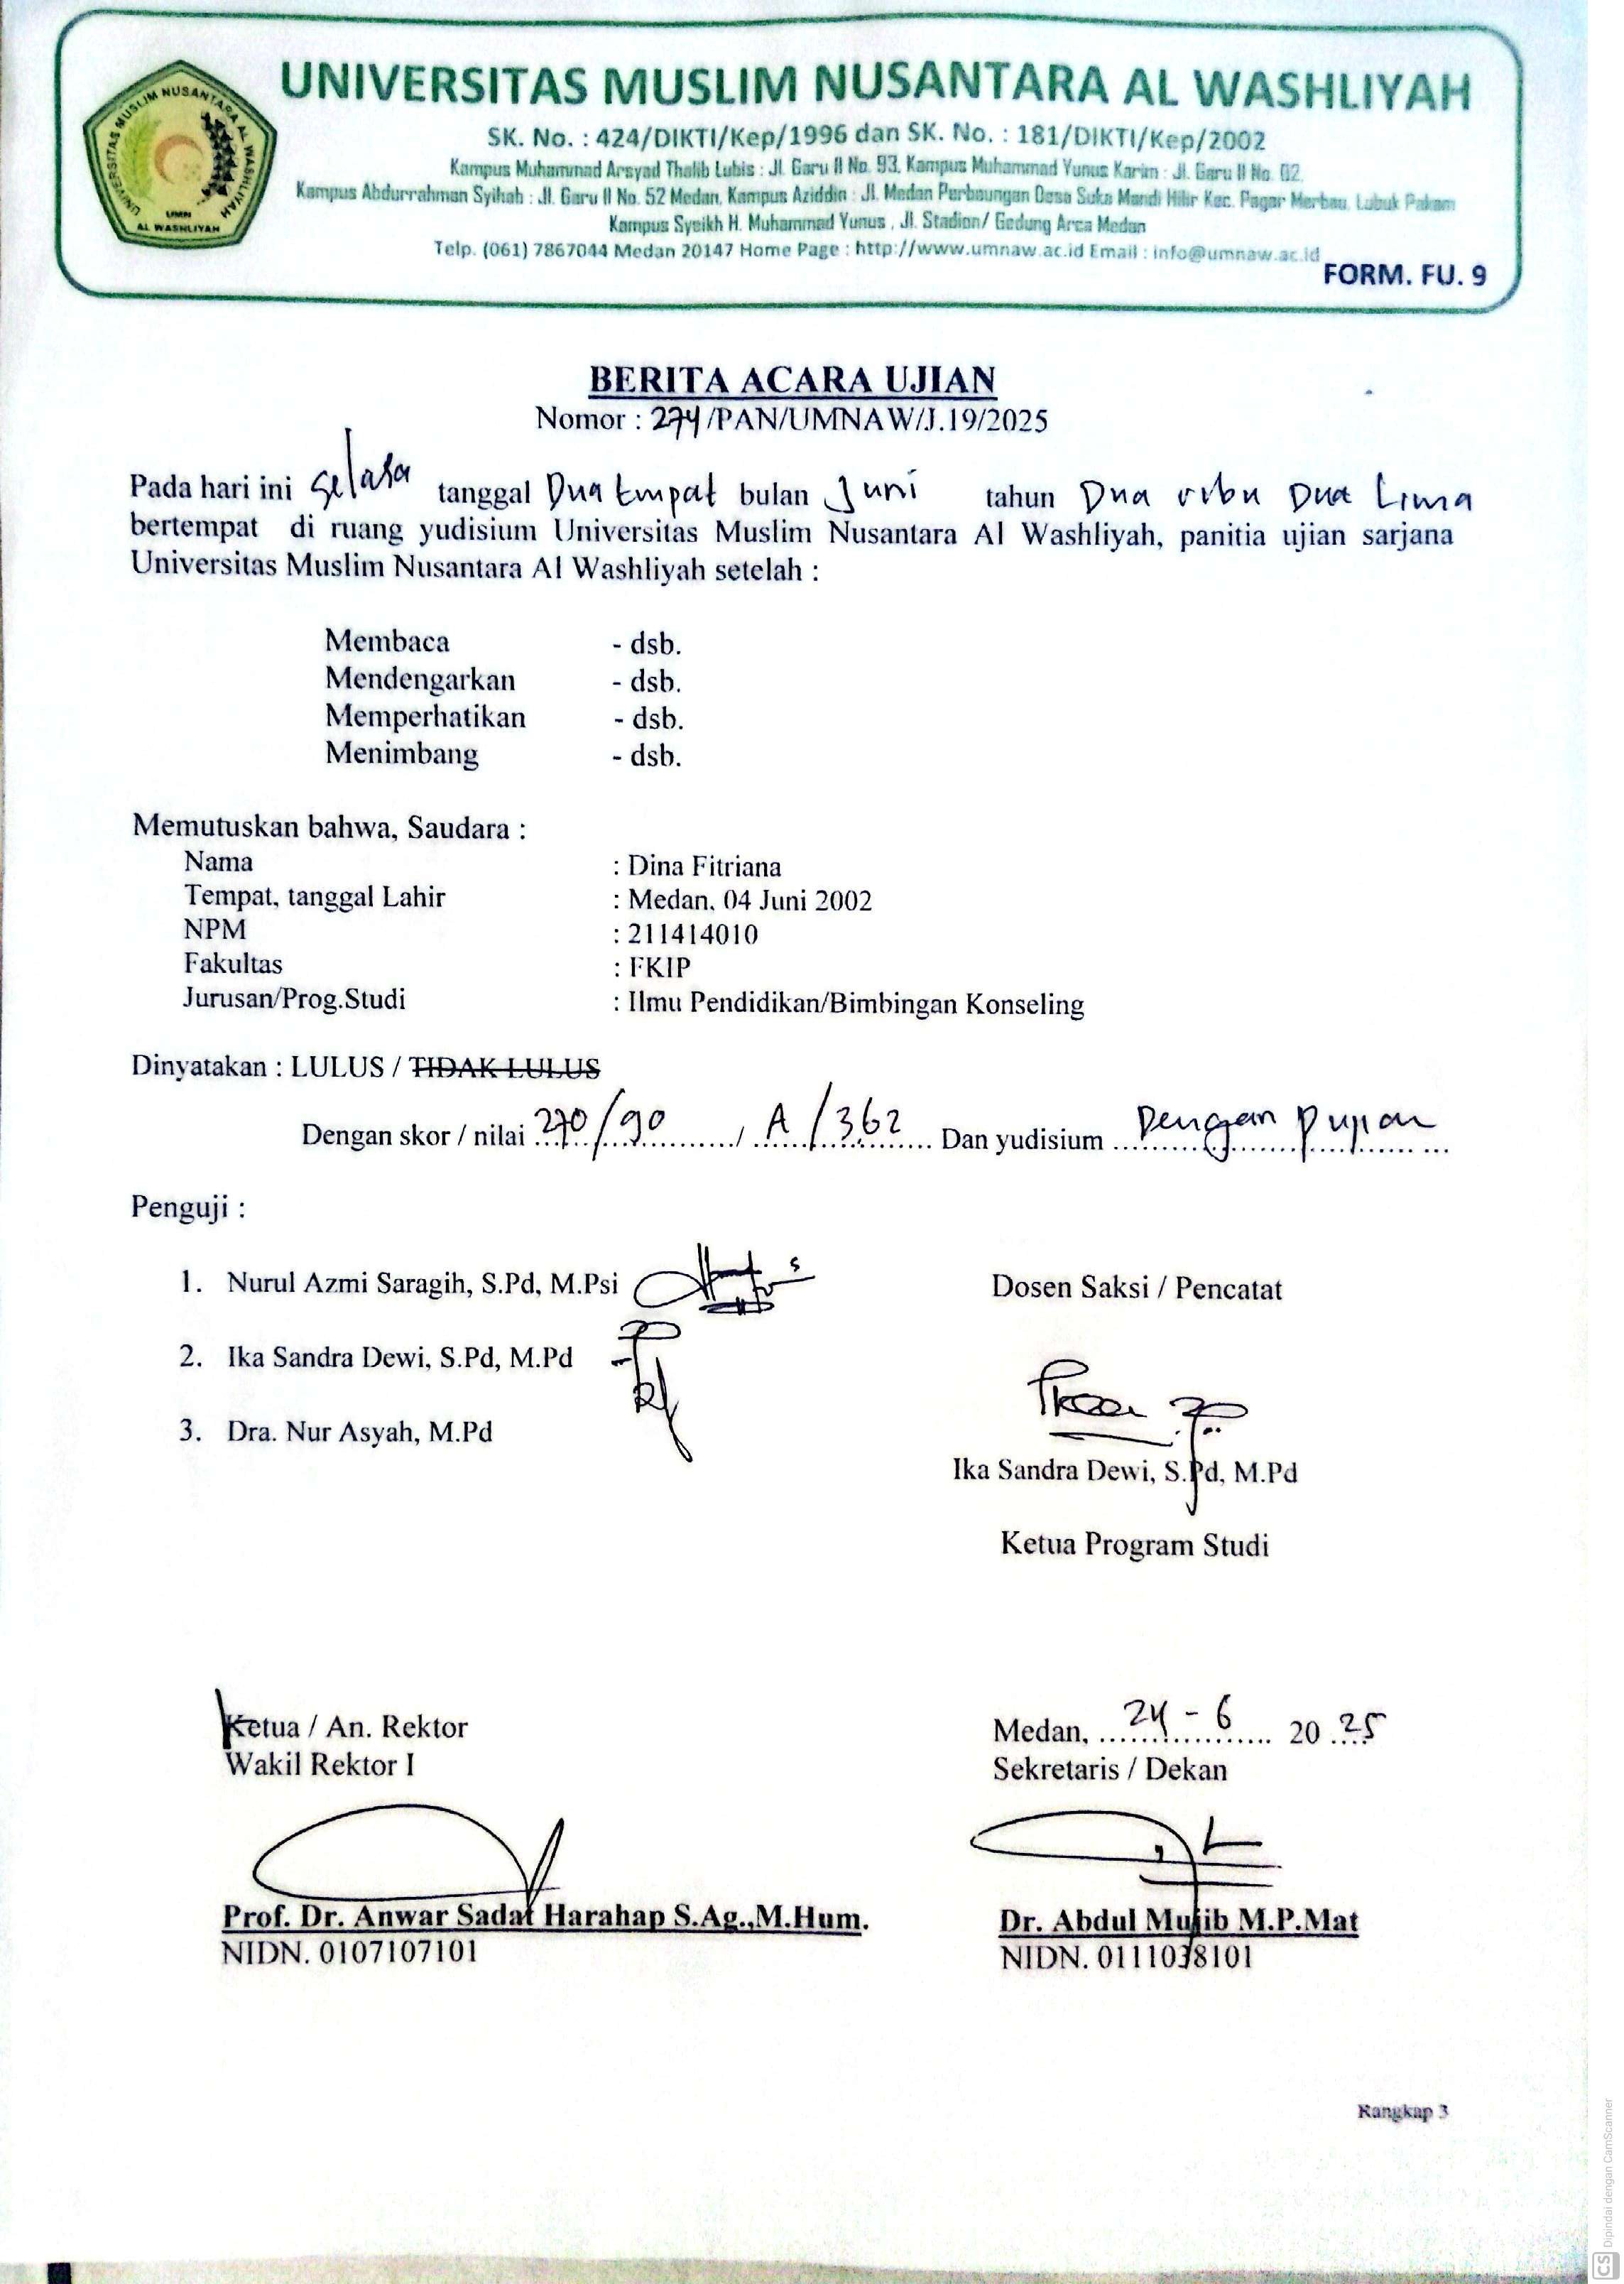 UNIVERSITAS MUSLIM NUSANTARA AL WASHLIYAH
UNIVERSITAS MUSLIM NUSANTARA AL WASHLIYAH
UMN
AL WASHLIYAH
SK. No. : 424/DIKTI/Kep/1996 dan SK. No. : 181/DIKTI/Kep/2002
Kampus Muhammad Arsyad Thalib Lubis : Jl. Garu II No. 93, Kampus Muhammad Yunus Karim : Jl. Garu II No. 02,
Kampus Abdurrahman Syihab : Jl. Garu II No. 52 Medan, Kampus Aziddin : Jl. Medan Perbaungan Desa Suka Mandi Hilir Kec. Pagar Merbau, Lubuk Pakam
Kampus Syeikh H. Muhammad Yunus , Jl. Stadion/ Gedung Arca Medan
Telp. (061) 7867044 Medan 20147 Home Page : http://www.umnaw.ac.id Email : info@umnaw.ac.id
FORM. FU. 9
BERITA ACARA UJIAN
Nomor : 274/PAN/UMNAW/J.19/2025
Pada hari ini Selasa tanggal Dua Empat bulan Juni tahun Dua ribu Dua Lima
bertempat di ruang yudisium Universitas Muslim Nusantara Al Washliyah, panitia ujian sarjana
Universitas Muslim Nusantara Al Washliyah setelah :
Membaca - dsb.
Mendengarkan - dsb.
Memperhatikan - dsb.
Menimbang - dsb.
Memutuskan bahwa, Saudara :
Nama : Dina Fitriana
Tempat, tanggal Lahir : Medan, 04 Juni 2002
NPM : 211414010
Fakultas : FKIP
Jurusan/Prog.Studi : Ilmu Pendidikan/Bimbingan Konseling
Dinyatakan : LULUS / TIDAK LULUS
Dengan skor / nilai 270/90 / A/3,62 Dan yudisium Dengan pujian
Penguji :
1. Nurul Azmi Saragih, S.Pd, M.Psi
Dosen Saksi / Pencatat
2. Ika Sandra Dewi, S.Pd, M.Pd
3. Dra. Nur Asyah, M.Pd
Ika Sandra Dewi, S.Pd, M.Pd
Ketua Program Studi
Ketua / An. Rektor
Wakil Rektor I
Medan, 24 - 6 2025
Sekretaris / Dekan
Prof. Dr. Anwar Sadat Harahap S.Ag.,M.Hum.
NIDN. 0107107101
Dr. Abdul Mujib M.P.Mat
NIDN. 0111038101
Rangkap 3
CS Dipindai dengan CamScanner